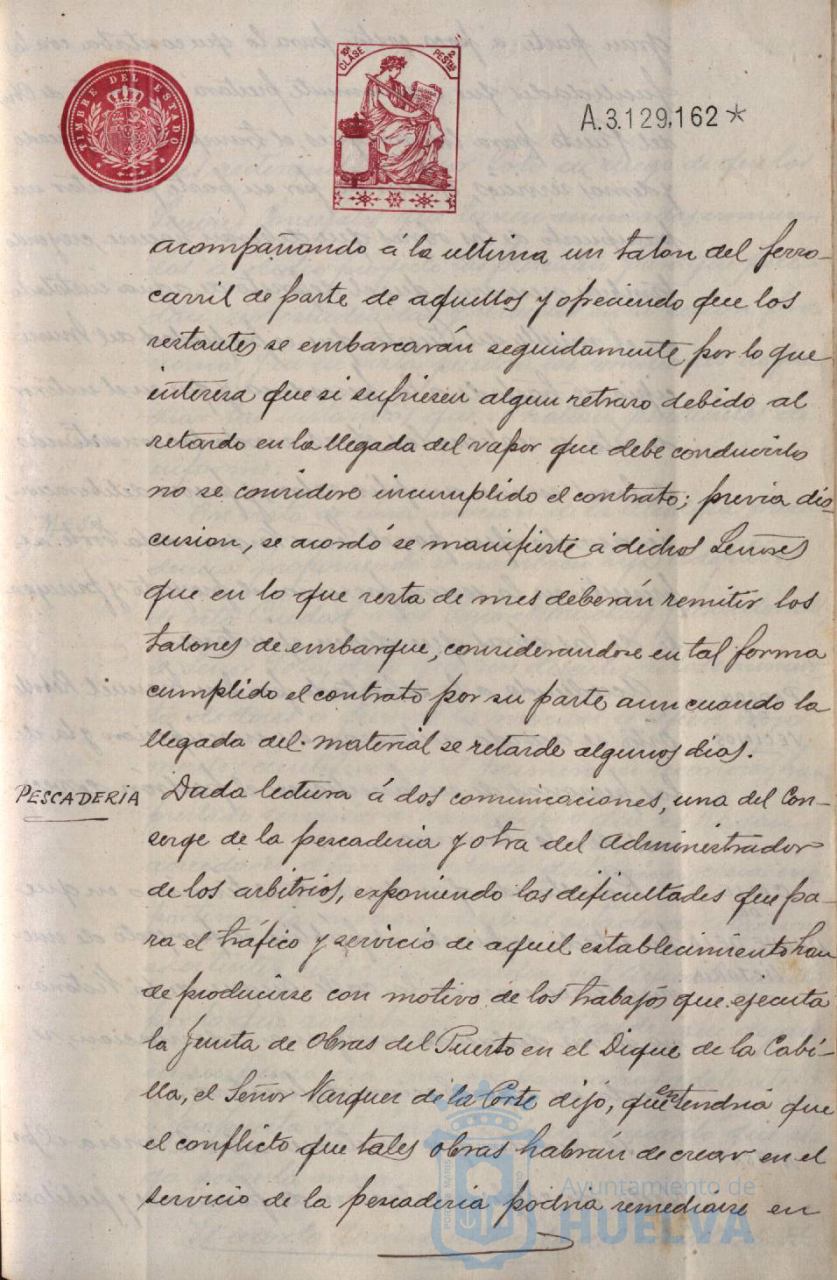 TIMBRE DEL ESTADO
10ª CLASE
2 PESTAS
A.3.129,162*
acompañando á la ultima un talon del ferro-
carril de parte de aquellos y ofreciendo que los
restantes se embarcarán seguidamente por lo que
interesa que si sufriesen algun retraso debido al
retardo en la llegada del vapor que debe conducirlo
no se considere incumplido el contrato; previa dis-
cusion, se acordó se manifieste á dichos Señores
que en lo que resta de mes deberán remitir los
talones de embarque, considerandose en tal forma
cumplido el contrato por su parte aun cuando la
llegada del material se retarde algunos dias.
PESCADERIA
Dada lectura á dos comunicaciones, una del Con-
serge de la pescaderia y otra del Administrador
de los arbitrios, exponiendo las dificultades que pa-
ra el tráfico y servicio de aquel establecimiento han
de producirse con motivo de los trabajos que ejecuta
la Junta de Obras del Puerto en el Dique de la Cabi-
lla, el Señor Vazquez de la Corte dijó, que entendria que
el conflicto que tales obras habrán de crear en el
servicio de la pescaderia podria remediarse en
Ayuntamiento de
HUELVA